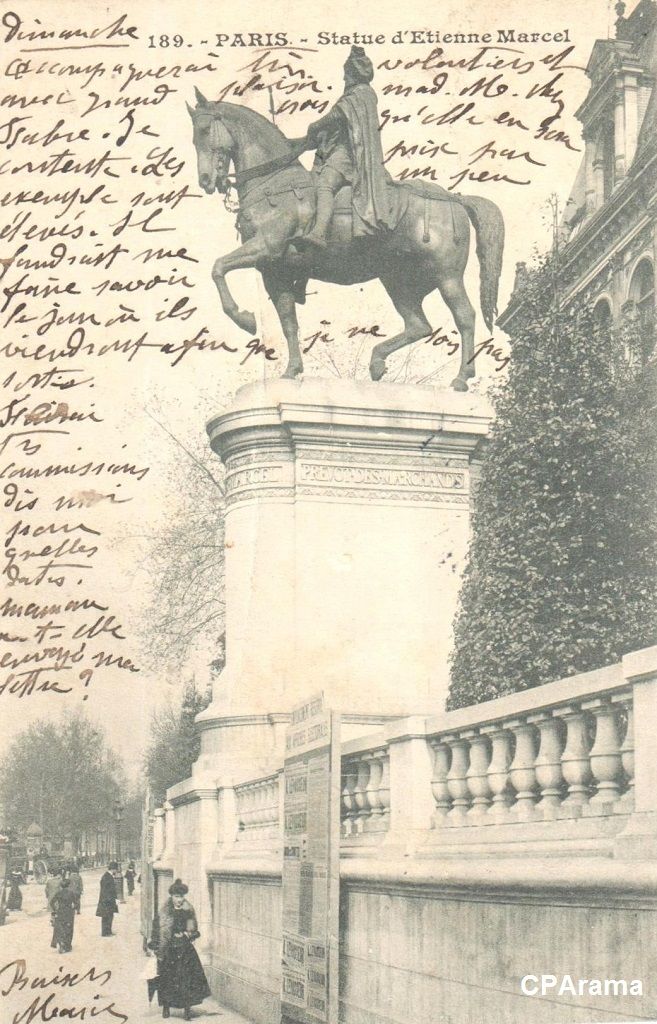 dimanche
189. - PARIS. - Statue d'Etienne Marcel
accompagnerai très volontiers et
avec grand plaisir. mad. M. chez
Fabre. Je crois qu'elle en sera
contente. Les prix par
exemple sont un peu
élevés. Il
faudrait me
faire savoir
le jour où ils
viendront afin que je ne sois pas
sortie.
Ferai
commissions
dis moi
pour
quelles
dates.
maman
a-t-elle
envoyé ma
lettre ?
MARCEL PREVOT-DES-MARCHANDS
Baisers
Marie
CPArama